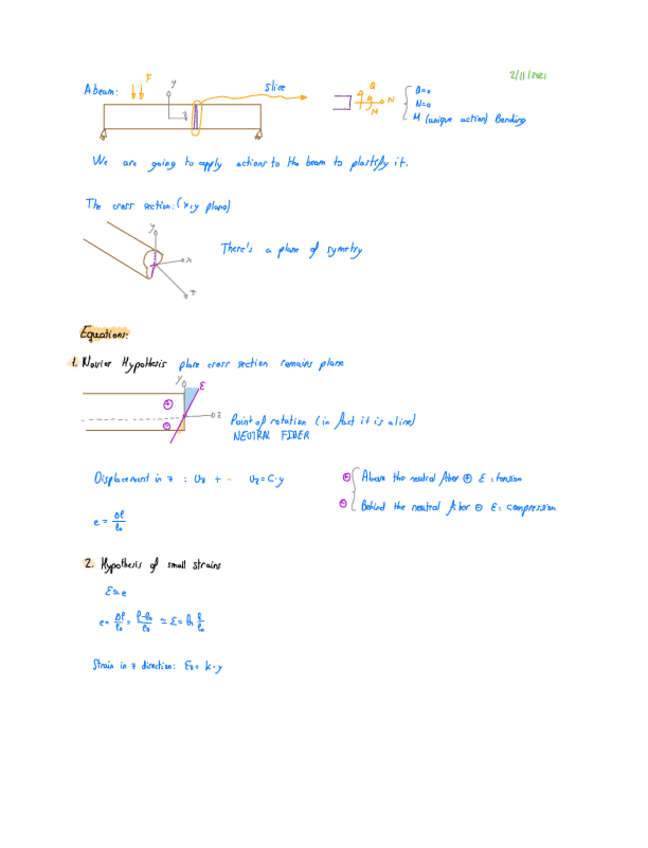 2/11/2021
A beam: F y slice
z
Q N M
Q=0
N=0
M (unique action) Bending
We are going to apply actions to the beam to plastify it.
The cross section: (x,y plane)
y x z
There's a plane of symetry
Equations:
1. Navier Hypothesis plane cross section remains plane
y ε
⊕ z
⊖
Point of rotation (in fact it is a line)
NEUTRAL FIBER
Displacement in z : Uz + - Uz = C·y
⊕ Above the neutral fiber ⊕ ε : tension
⊖ Behind the neutral fiber ⊖ ε : compression
e = Δl/l₀
2. Hypothesis of small strains
ε ≈ e
e = Δl/l₀ = l-l₀/l₀ ≃ ε = ln l/l₀
Strain in z direction: εz = k·y